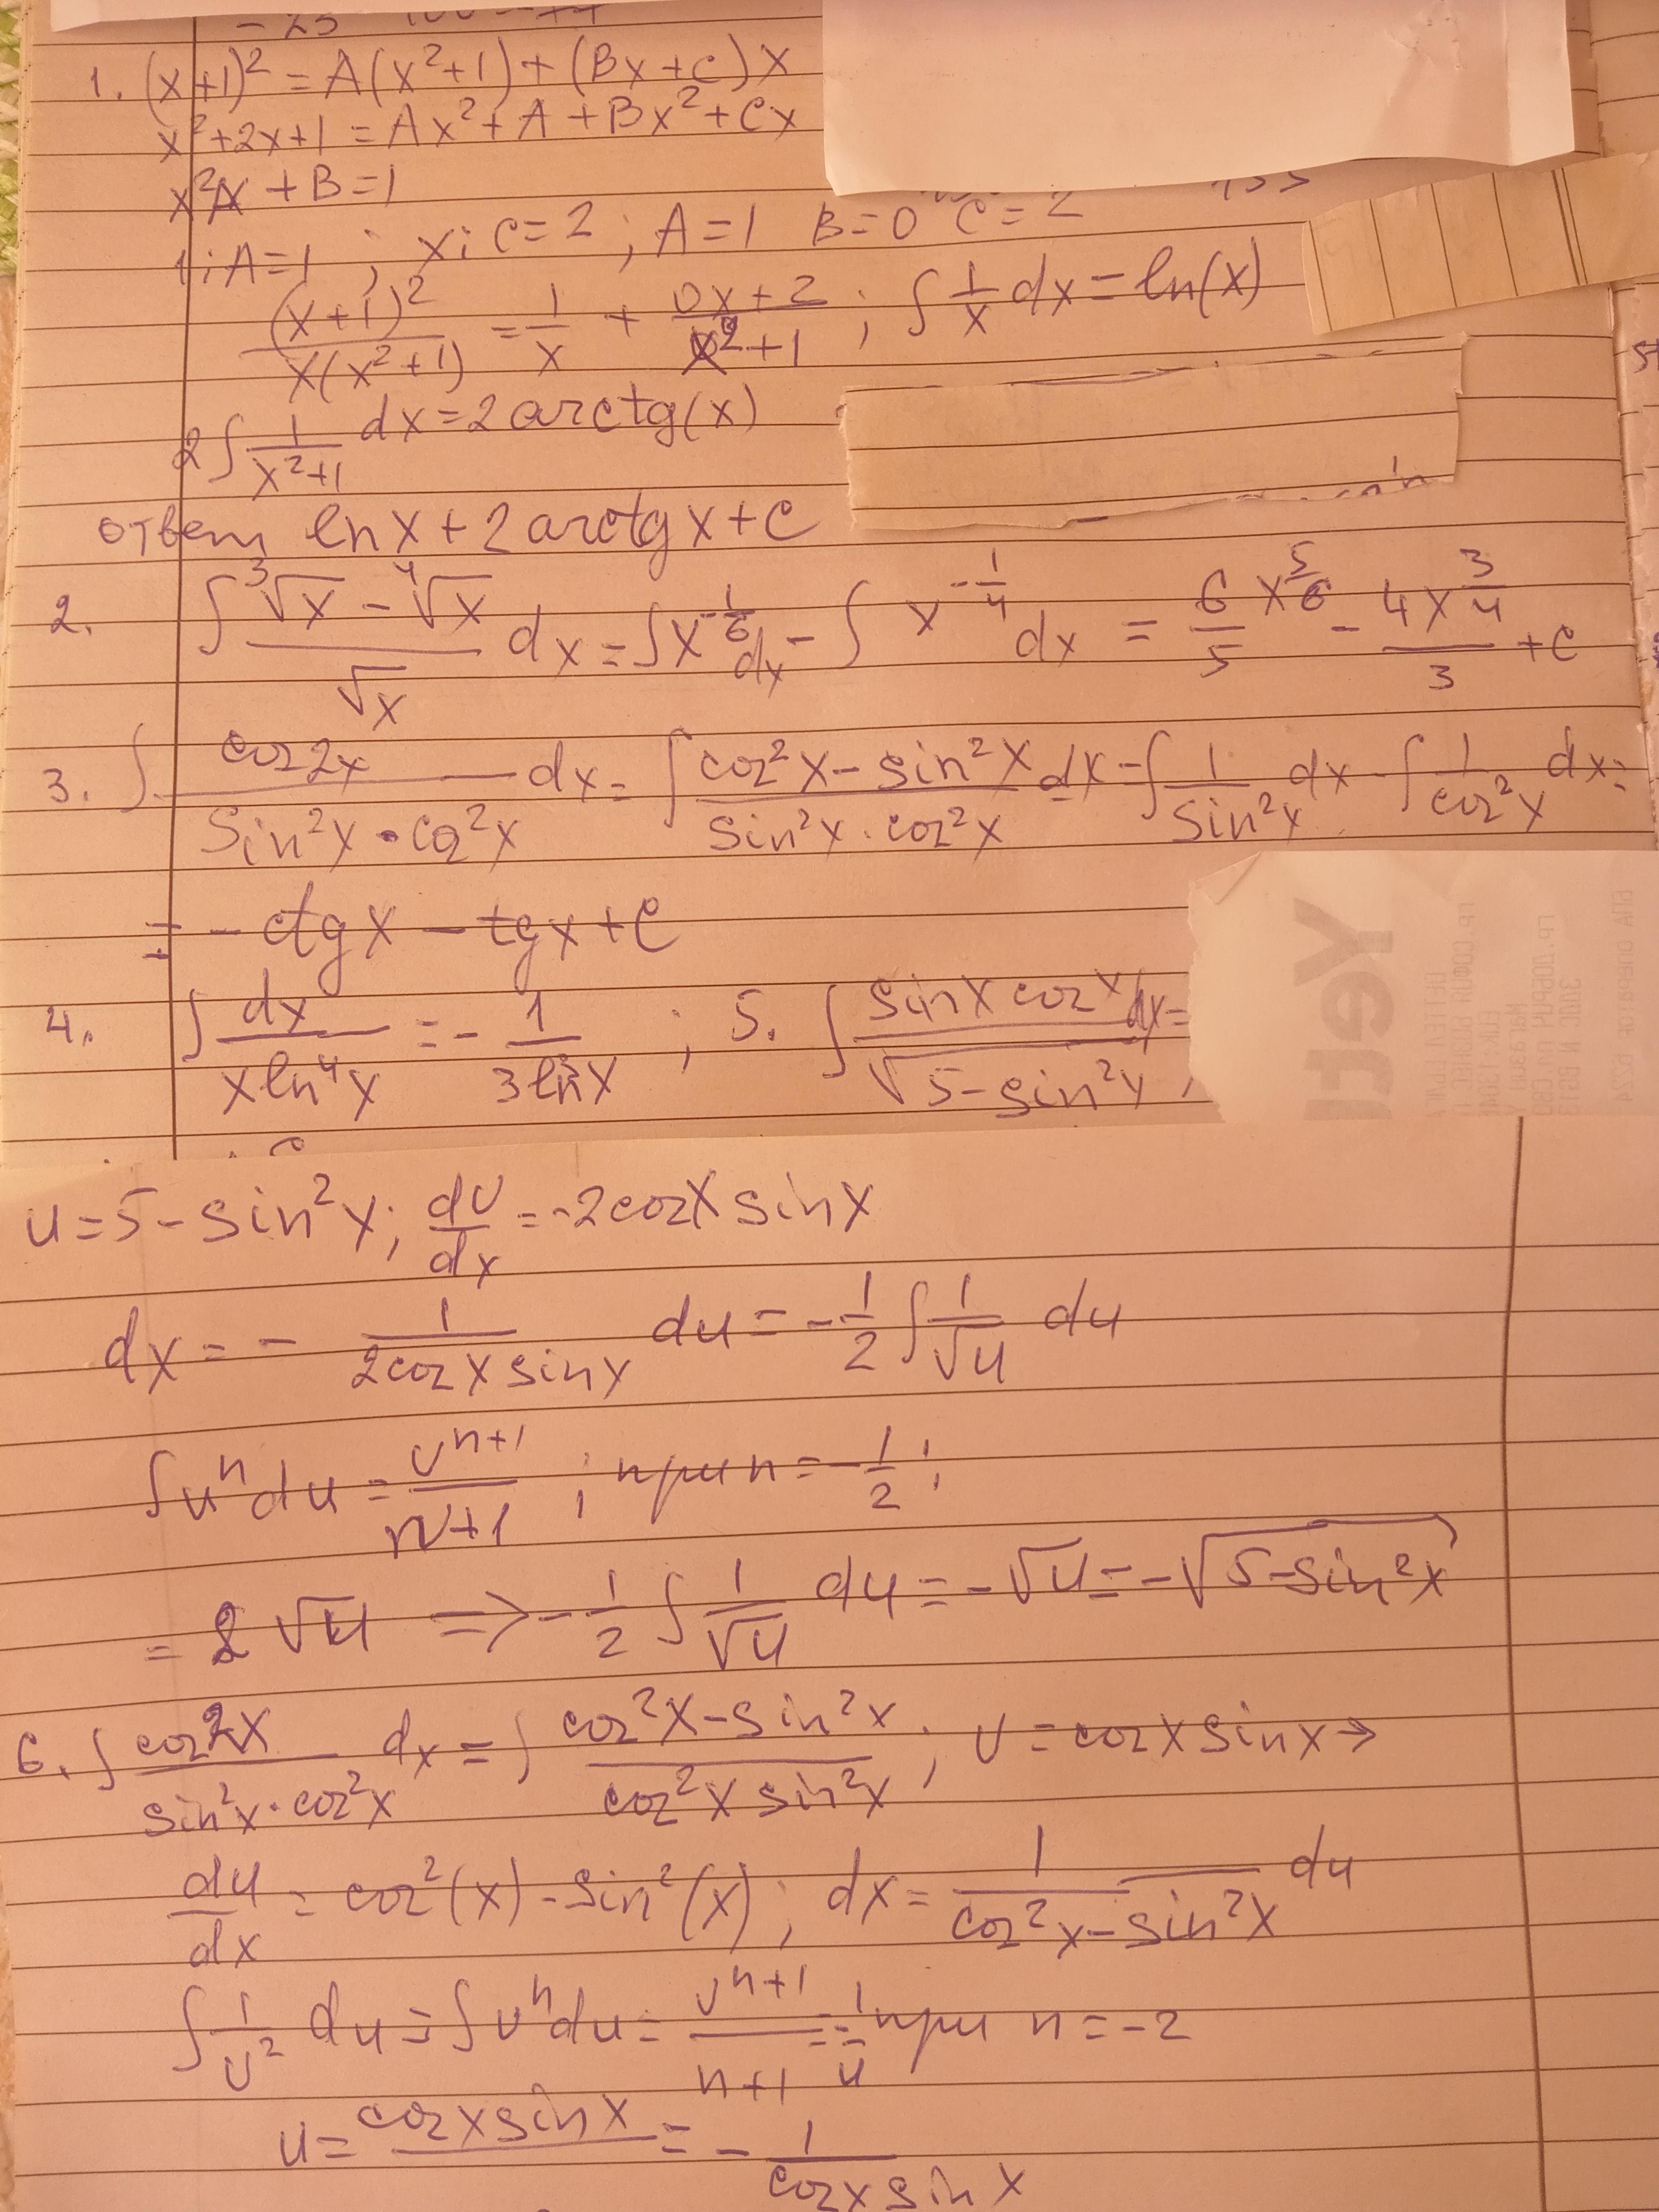 1. (x+1)² = A(x²+1) + (Bx+C)x
x²+2x+1 = Ax²+A+Bx²+Cx
x²A + B = 1
1; A=1 ; x; C=2 ; A=1 B=0 C=2
(x+1)²/(x(x²+1)) = 1/x + (0x+2)/(x²+1) ; ∫ 1/x dx = ln(x)
2∫ 1/(x²+1) dx = 2 arctg(x)
ответ ln x + 2 arctg x + C
2. ∫ (³√x − ⁴√x)/√x dx = ∫x^(-1/6) dx − ∫ x^(-1/4) dx = 6/5 x^(5/6) − 4x^(3/4)/3 + C
3. ∫ cos2x/(sin²x · cos²x) dx = ∫ (cos²x − sin²x)/(sin²x · cos²x) dx = ∫ 1/sin²x dx − ∫ 1/cos²x dx =
= − ctg x − tg x + C
4. ∫ dx/(x ln⁴x) = − 1/(3 ln³x) ; 5. ∫ sin x cos x/√(5−sin²x) dx =
Yettel
u = 5 − sin²x ; du/dx = −2cos x sin x
dx = − 1/(2cos x sin x) du = −1/2 ∫ 1/√u du
∫uⁿdu = uⁿ⁺¹/(n+1) ; при n = −1/2 ;
= 2√u ⇒ −1/2 ∫ 1/√u du = −√u = −√(5−sin²x)
6. ∫ cos2x/(sin²x · cos²x) dx = ∫ (cos²x − sin²x)/(cos²x sin²x) ; u = cos x sin x →
du/dx = cos²(x) − sin²(x) ; dx = 1/(cos²x − sin²x) du
∫ 1/u² du = ∫uⁿdu = uⁿ⁺¹/(n+1) = −1/u при n = −2
u = cos x sin x = − 1/(cos x sin x)